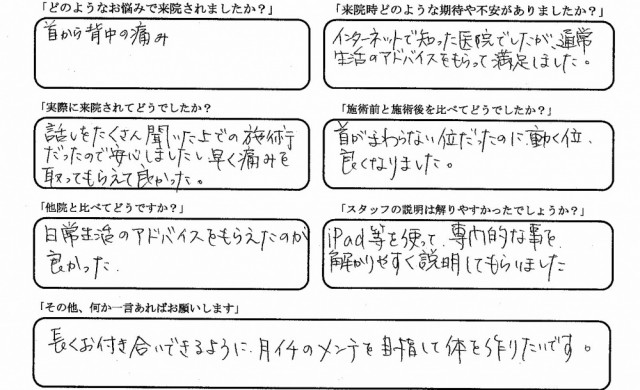 「どのようなお悩みで来院されましたか？」
首から背中の痛み
「来院時どのような期待や不安がありましたか？」
インターネットで知った医院でしたが、通常
生活のアドバイスをもらって満足しました。
「実際に来院されてどうでしたか？」
話しをたくさん聞いた上での施術
だったので安心しましたし早く痛みを
取ってもらえて良かった。
「施術前と施術後を比べてどうでしたか？」
首がまわらない位だったのに動く位、
良くなりました。
「他院と比べてどうですか？」
日常生活のアドバイスをもらえたのが
良かった.
「スタッフの説明は解りやすかったでしょうか？」
iPad等を使って、専門的な事を
解かりやすく説明してもらいました
「その他、何か一言あればお願いします」
長くお付き合いできるように、月イチのメンテを目指して体を作りたいです。